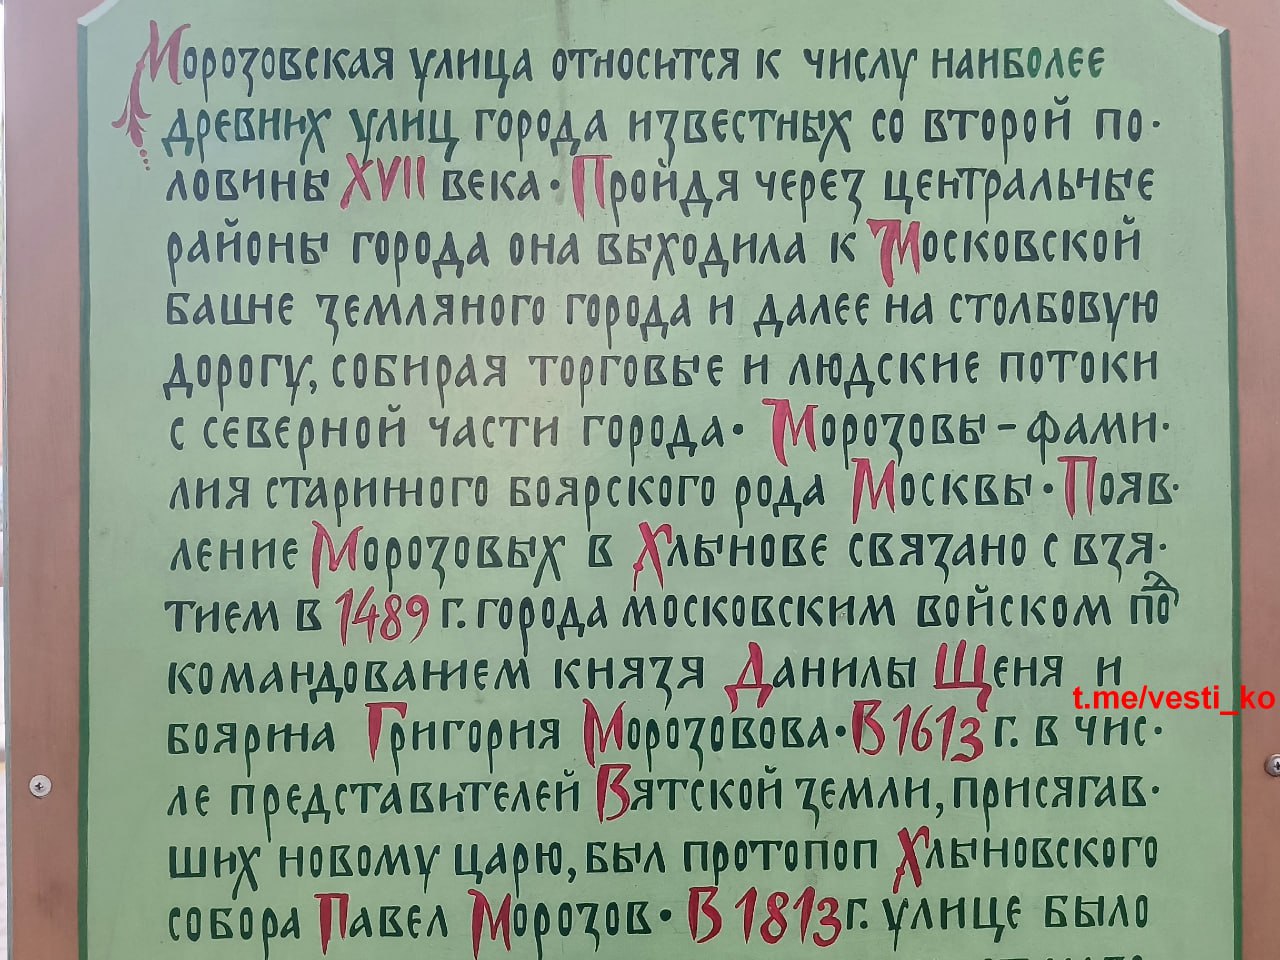 Морозовская улица относится к числу наиболее
древних улиц города известных со второй по·
ловины XVII века· Пройдя через центральные
районы города она выходила к Московской
башне земляного города и далее на столбовую
дорогу, собирая торговые и людские потоки
с северной части города· Морозовы – фами·
лия старинного боярского рода Москвы· Появ·
ление Морозовых в Хлынове связано с взя·
тием в 1489 г. города московским войском под
командованием князя Данилы Щеня и
t.me/vesti_ko
боярина Григория Морозовова· В 1613 г. в чис·
ле представителей Вятской земли, присягав·
ших новому царю, был протопоп Хлыновского
собора Павел Морозов· В 1813 г. улице было